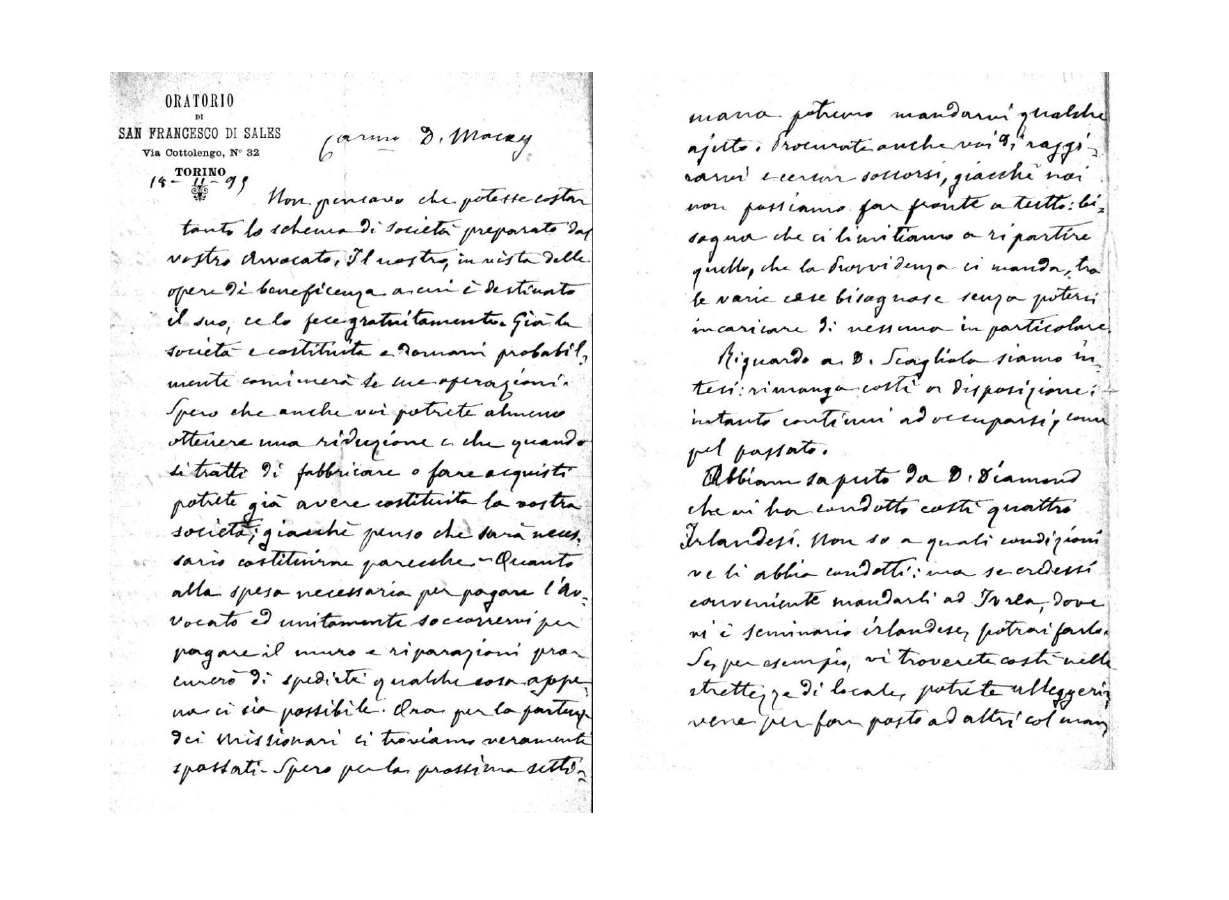 ORATORIO
DI
SAN FRANCESCO DI SALES
Via Cottolengo, N° 32
TORINO
18-11-99
Carmo D. Macey
Non pensavo che potesse costar
tanto lo schema di società preparato dal
vostro Avvocato. Il nostro, in vista delle
opere di beneficenza a cui è destinato
il suo, ce lo fece gratuitamente. Già la
società è costituita e domani probabil-
mente comincerà le sue operazioni.
Spero che anche voi potrete almeno
ottenere una riduzione e che quando
si tratti di fabbricare o fare acquisti
potrete già avere costituita la vostra
società; giacchè penso che sarà neces-
sario costituirne parecchie - Quanto
alla spesa necessaria per pagare l'Av-
vocato ed unitamente soccorrervi per
pagare il muro e riparazioni pro-
curerò di spedirti qualche cosa appe-
na ci sia possibile. Ora per la partenza
dei Missionari ci troviamo veramente
spossati - Spero per la prossima setti-
mana potremo mandarvi qualche
ajuto. Procurate anche voi di raggi-
rarvi e cercar soccorsi, giacchè noi
non possiamo far fronte a tutto: bi-
sogna che ci limitiamo a ripartire
quello, che la Provvidenza ci manda, tra
le varie case bisognose senza poterci
incaricare di nessuna in particolare.
Riguardo a D. Scagliola siamo in-
tesi: rimanga costì a disposizione:
intanto continui ad occuparsi, come
pel passato.
Abbiam saputo da D. Diamond
che vi ha condotto costì quattro
Irlandesi. Non so a quali condizioni
ve li abbia condotti: ma se credessi
conveniente mandarli ad Ivrea, dove
vi è seminario irlandese, potrai farlo.
Se, per esempio, vi troverete costì nelle
strettezze di locale, potrete alleggerir-
vene per far posto ad altri col man